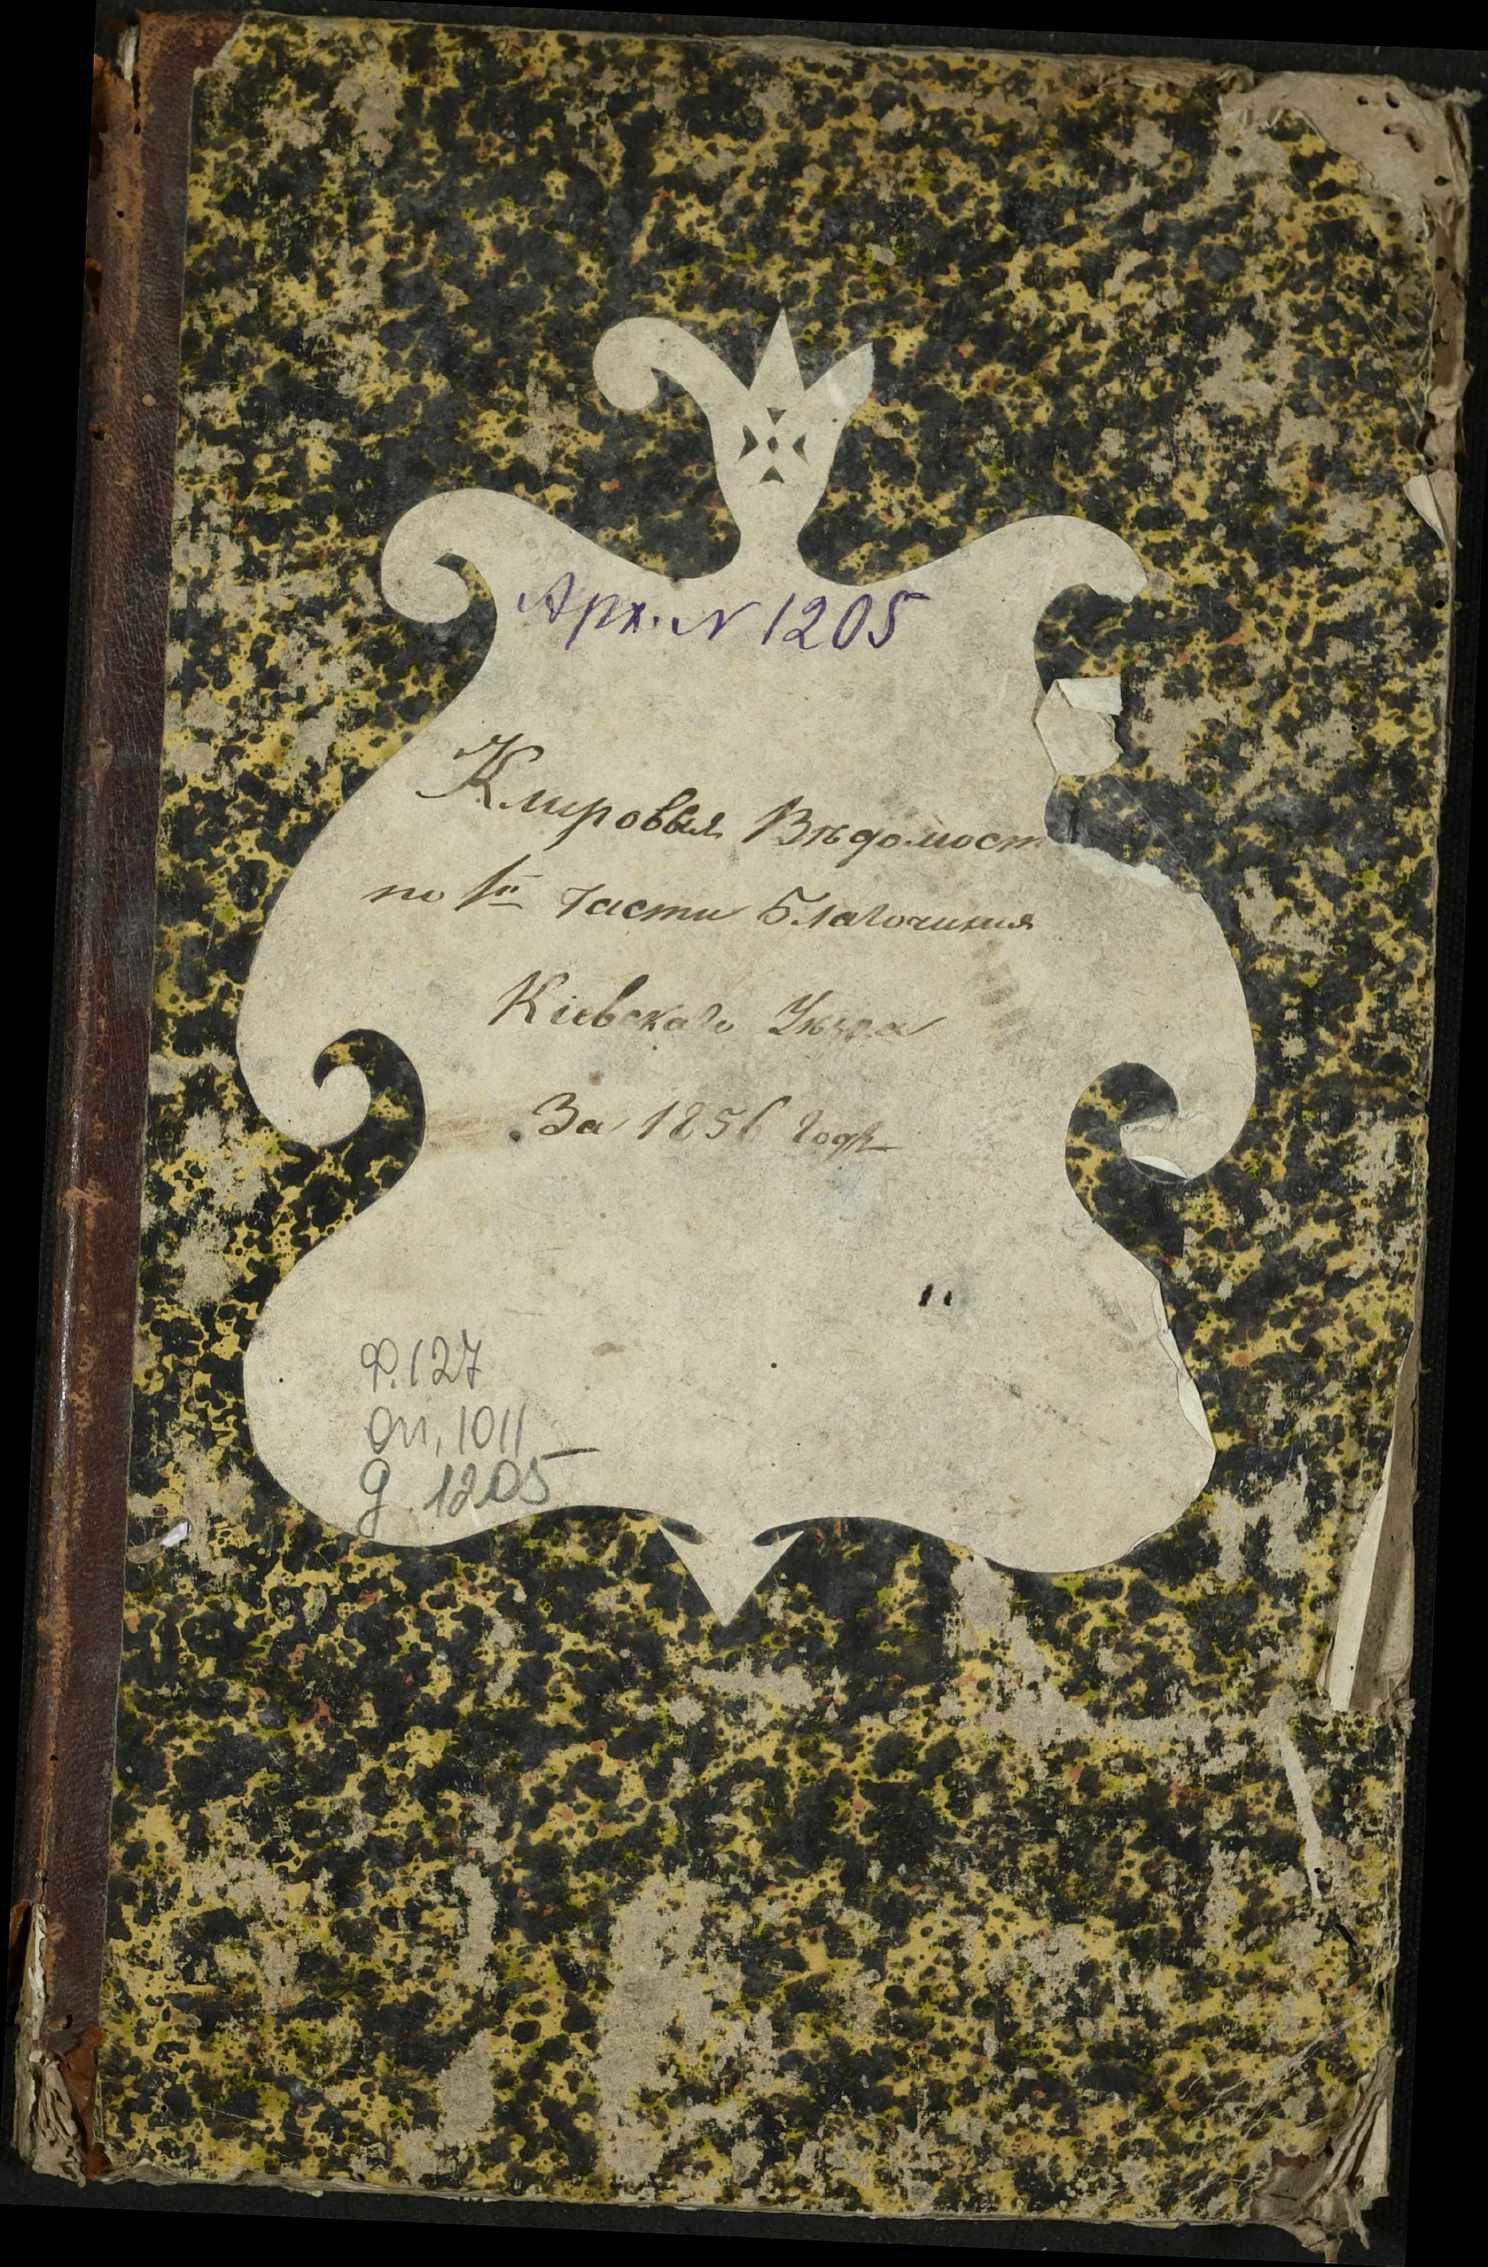 Арх. N 1205
Клировыя Вѣдомост
по 1й части Благочиния
Кіевскаго Уѣзда
За 1856 годъ
Ф. 127
оп. 1011
д 1205